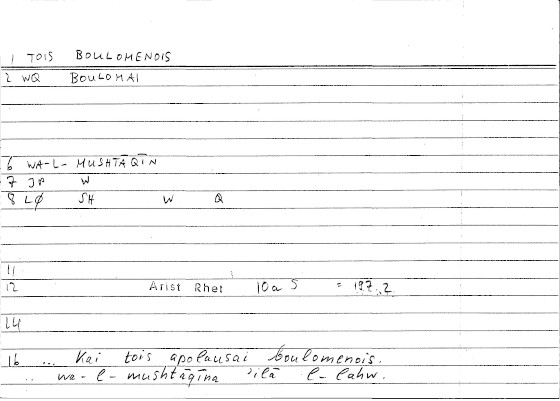 1 TOIS BOULOMENOIS
2 WQ BOULOMAI
6 WA-L-MUSHTĀQĪN
7 JP W
8 LØ SH W Q
11
12 Arist Rhet 10a5 = 197,2
14
16 ... Kai tois apolausai boulomenois.
.. wa-l-mushtāqīna 'ilā l-lahw.